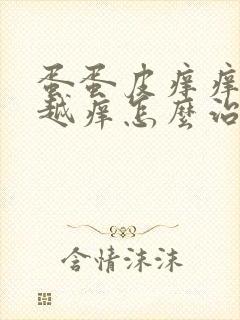 蛋蛋皮痒痒
越痒怎麼治
含情沫沫